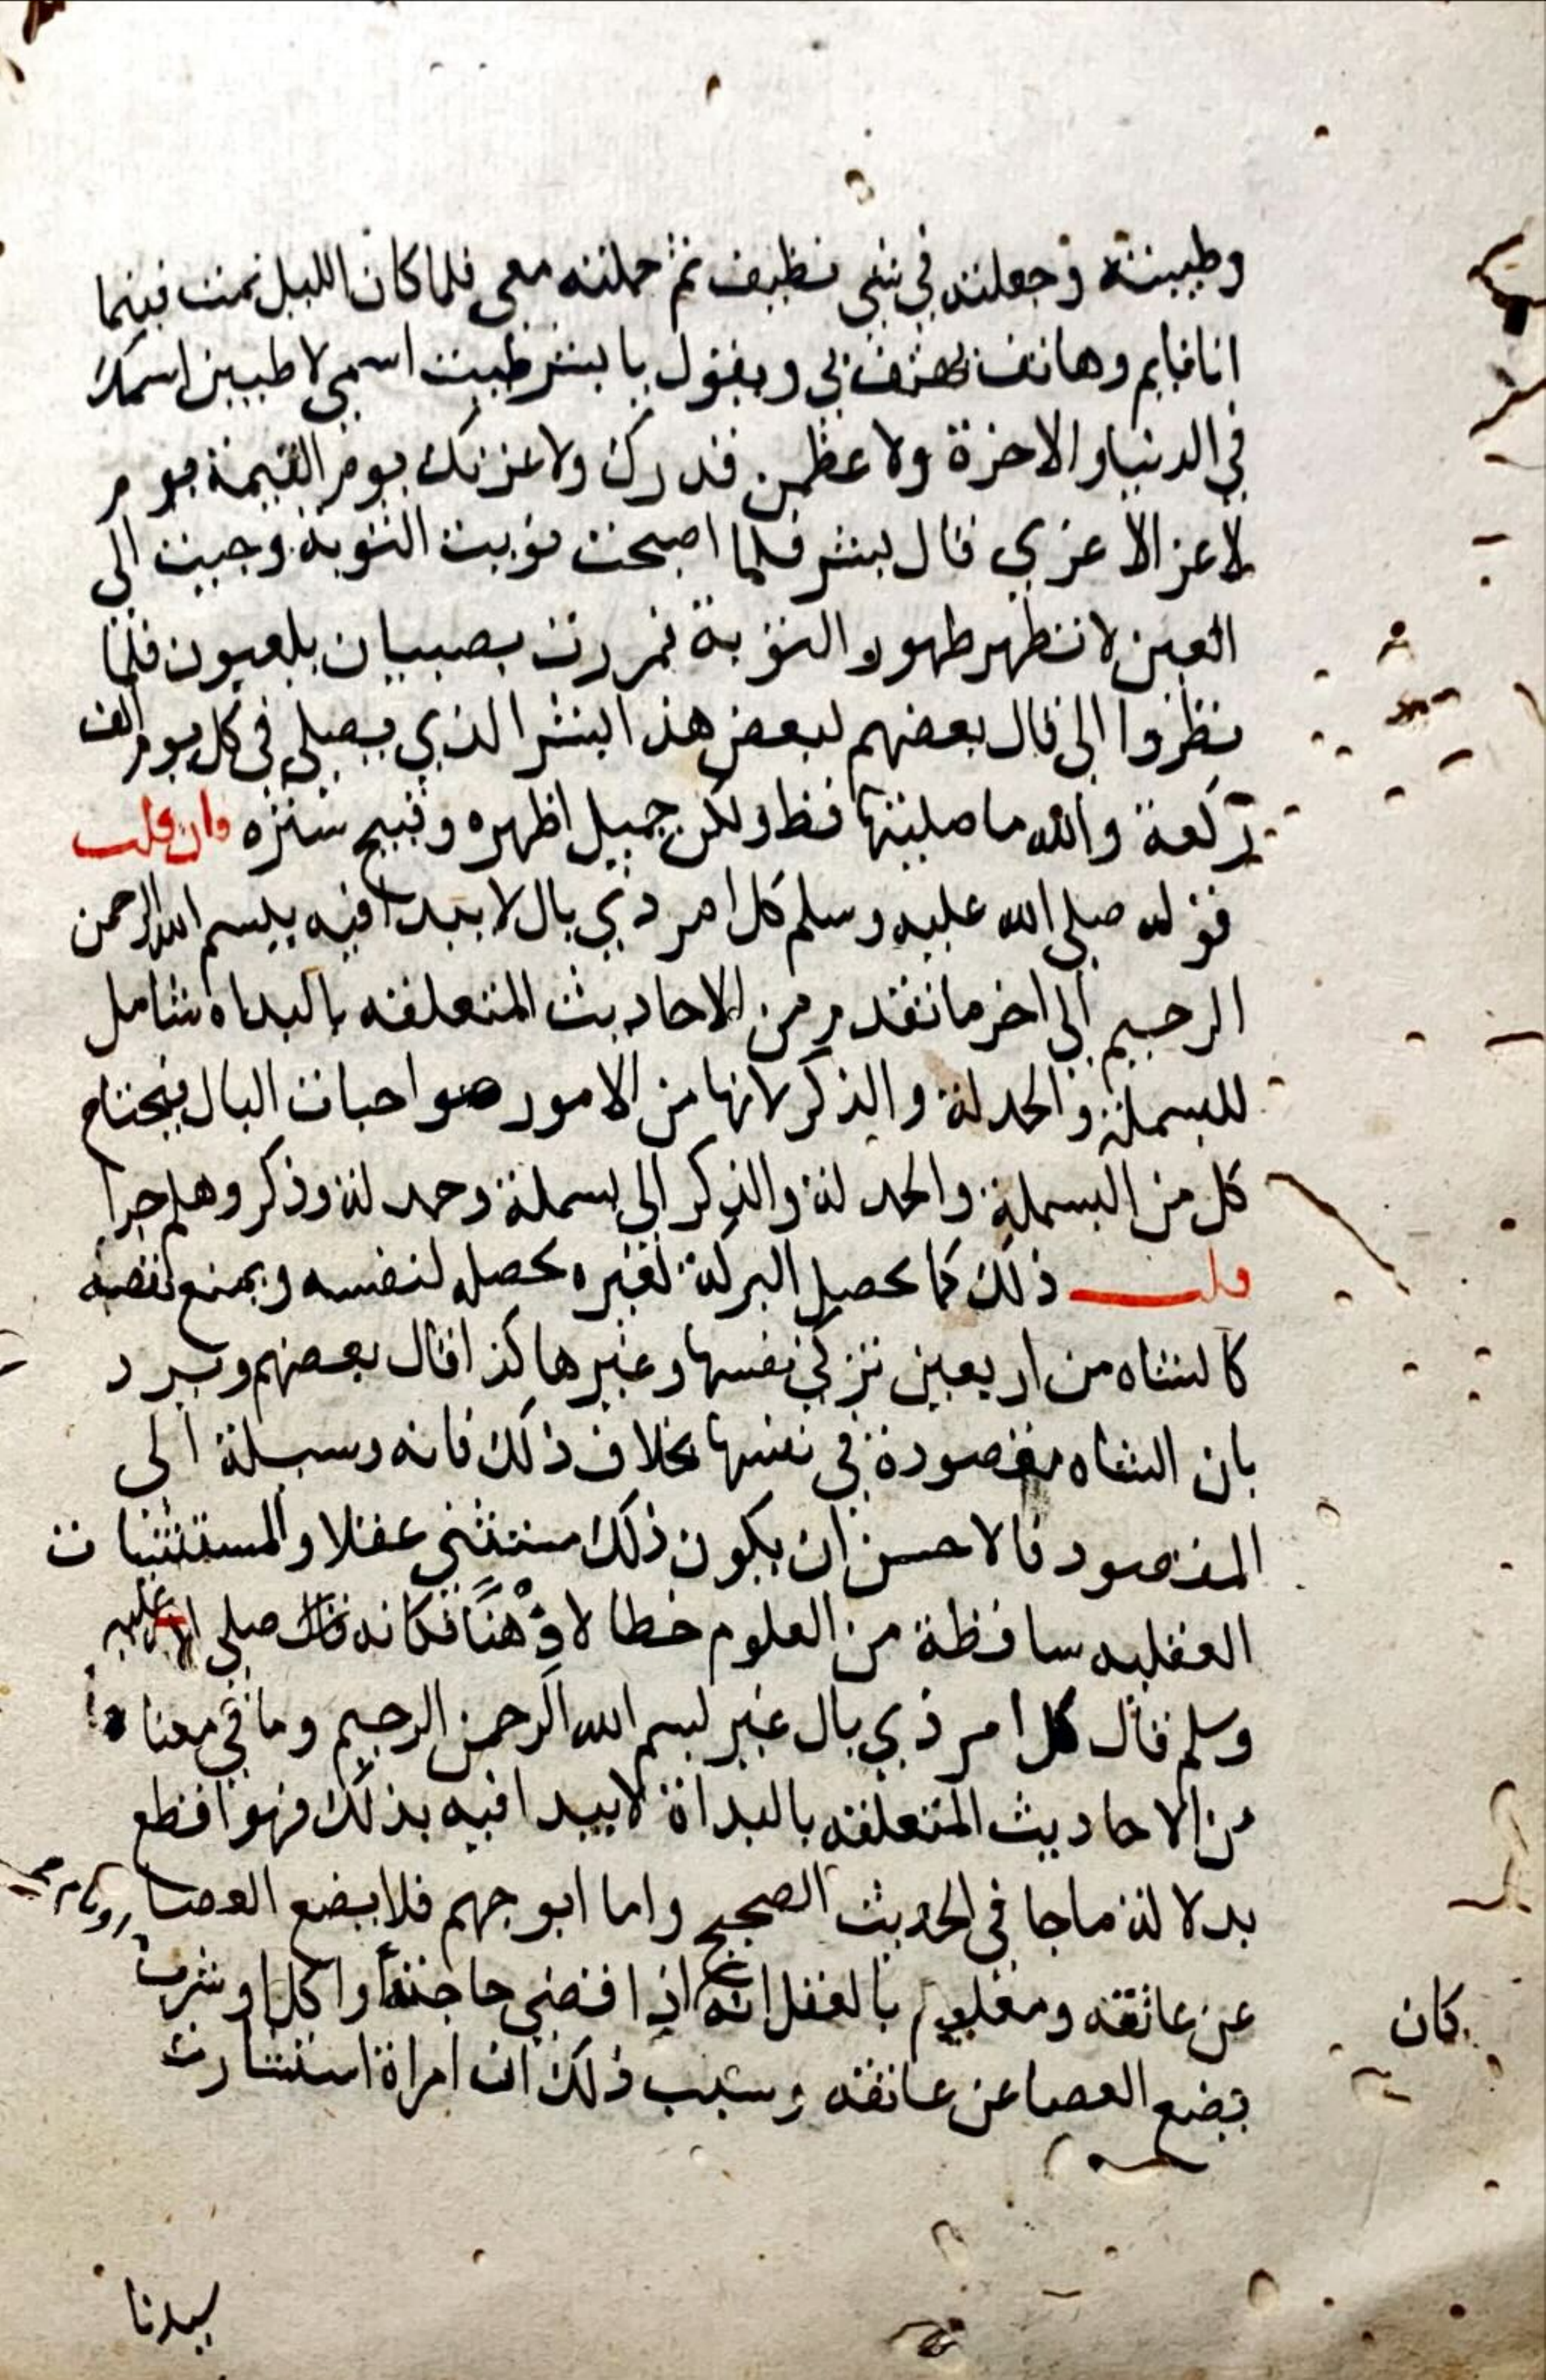 وطيبته وجعلته في شي نظيف ثم حملته معي فلما كان الليل نمت فبينما
انا نايم وهاتف يهتف بي ويقول يا بشر طيبت اسمي لاطيبن اسمك
في الدنيا والاخرة ولاعظمن قدرك ولاعزنك يوم القيمة يوم
لا عز الا عزي قال بشر فلما اصبحت نويت التوبة وجيت الى
العين لا تطهر طهور التوبة فمررت بصبيان يلعبون فلما
نظروا الي قال بعضهم لبعض هذا بشر الذي يصلي في كل يوم الف
ركعة والله ما صليتها قط ولكن جميل اظهره وقبيح ستره فان قلت
قوله صلى الله عليه وسلم كل امر ذي بال لا يبدا فيه ببسم الله الرحمن
الرحيم الى اخر ما تقدم من الاحاديث المتعلقه بالبداه شامل
للبسملة والحمدلة والذكر لانها من الامور صواحبات البال فيحتاج
كل من البسملة والحمدلة والذكر الى بسملة وحمدلة وذكر وهلم جرا
قلت ذلك كما يحصل البركة لغيره يحصل لنفسه ويمنع نقصه
كالشاه من اربعين تزكي نفسها وغيرها كذا قال بعضهم ويرد
بان الشاه مقصودة في نفسها بخلاف ذلك فانه وسيلة الى
المقصود فالاحسن ان يكون ذلك مستثني عقلا والمستثنيات
العقليه ساقطة من العلوم خطا لا وهنا فكانه قال صلى الله عليه
وسلم قال كل امر ذي بال غير بسم الله الرحمن الرحيم وما في معناه
من الاحاديث المتعلقه بالبداة لا يبدا فيه بذلك فهو اقطع
بدلالة ما جا في الحديث الصحيح واما ابو جهم فلا يضع العصا
عن عاتقه ومعلوم بالعقل انه اذا قضي حاجته او اكل او شرب
كان
يضع العصا عن عاتقه وسبب ذلك ان امراة استشارت
سيدنا